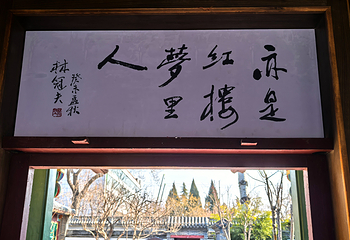 亦是
红楼
梦里
人
癸未孟秋
林冠夫